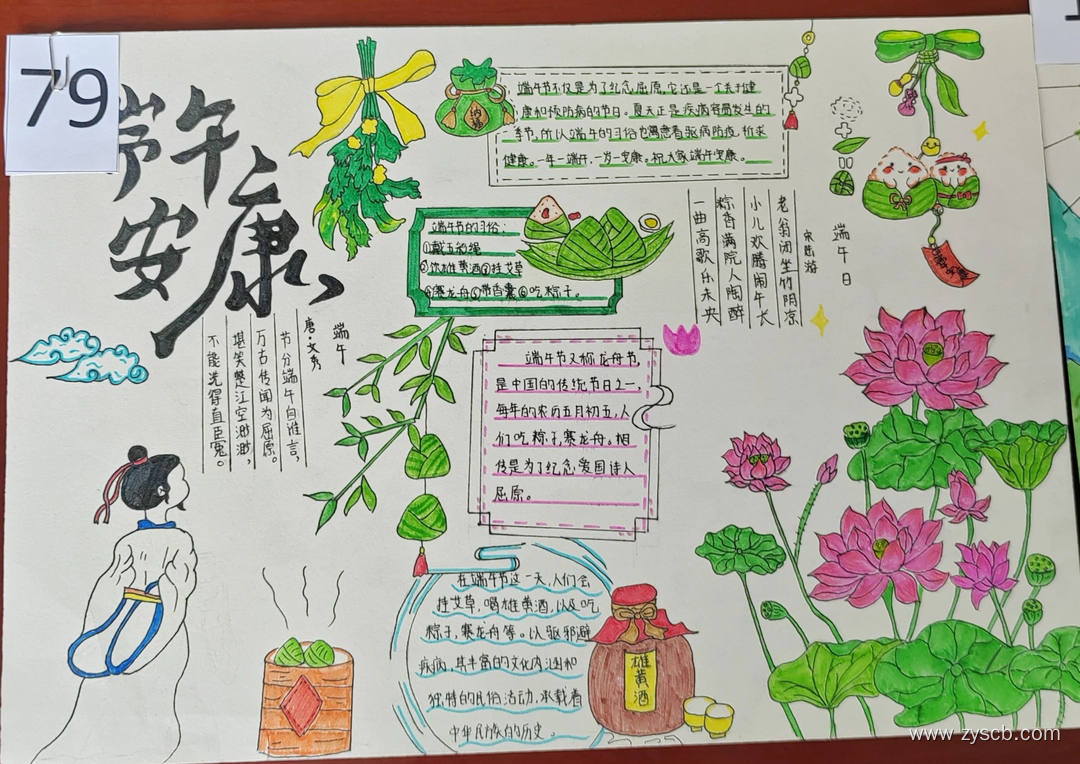 79
端午
安康
纳福
端午节不仅是为了纪念屈原,它还是一个关于健
康和预防病的节日。夏天正是疾病容易发生的
季节,所以端午的习俗也寓意着驱病防疫,祈求
健康。一年一端午,一岁一安康。祝大家端午安康。
端午节的习俗:
①戴五彩绳
②饮雄黄酒③挂艾草
④赛龙舟⑤带香囊⑥吃粽子。
端午日
宋·陈游
老翁闭坐竹阴凉
小儿欢腾闹午长
粽香满院人陶醉
一曲高歌乐未央
端午
唐·文秀
节分端午自谁言,
万古传闻为屈原。
堪笑楚江空渺渺,
不能洗得直臣冤。
端午节又称龙舟节,
是中国的传统节日之一,
每年的农历五月初五,人
们吃粽子,赛龙舟。相
传是为了纪念爱国诗人
屈原。
在端午节这一天,人们会
挂艾草,喝雄黄酒,以及吃
粽子,赛龙舟等。以驱邪避
疾病,其丰富的文化内涵和
独特的民俗活动,承载着
中华民族的历史。
雄黄酒
www.zyscb.com